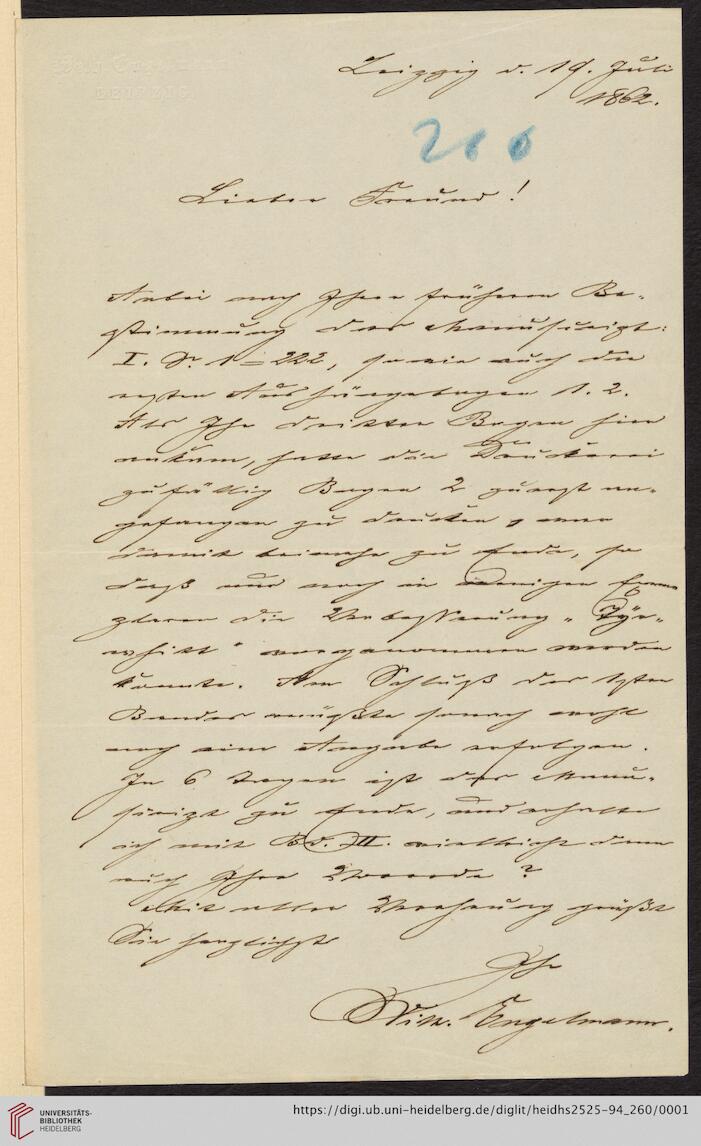 Leipzig d. 19. Juli
1862.
260
Lieber Freund!
Anbei nach Ihrer früheren Be-
stimmung das Manuscript:
I. S. 1–222, sowie auch die
ersten Aushängebogen 1. 2.
Als Ihr dritter Bogen hier
ankam, hatte die Druckerei
zufällig Bogen 2 zuerst an-
gefangen zu drucken, war
damit beinahe zu Ende, so
daß nur noch in wenigen Exem-
plaren die Verbesserung
vorgenommen werden
konnte. Am Schluß des 1sten
Bandes müßte sonach wohl
noch eine Angabe erfolgen.
In 6 Tagen ist das Manu-
script zu Ende, und erhalte
ich mit Bd. III. vielleicht dann
auch Ihre Vorrede?
Mit alter Verehrung grüßt
Sie herzlichst
Ihr
Wilh. Engelmann.
UNIVERSITÄTS-
BIBLIOTHEK
HEIDELBERG
https://digi.ub.uni-heidelberg.de/diglit/heidhs2525-94_260/0001